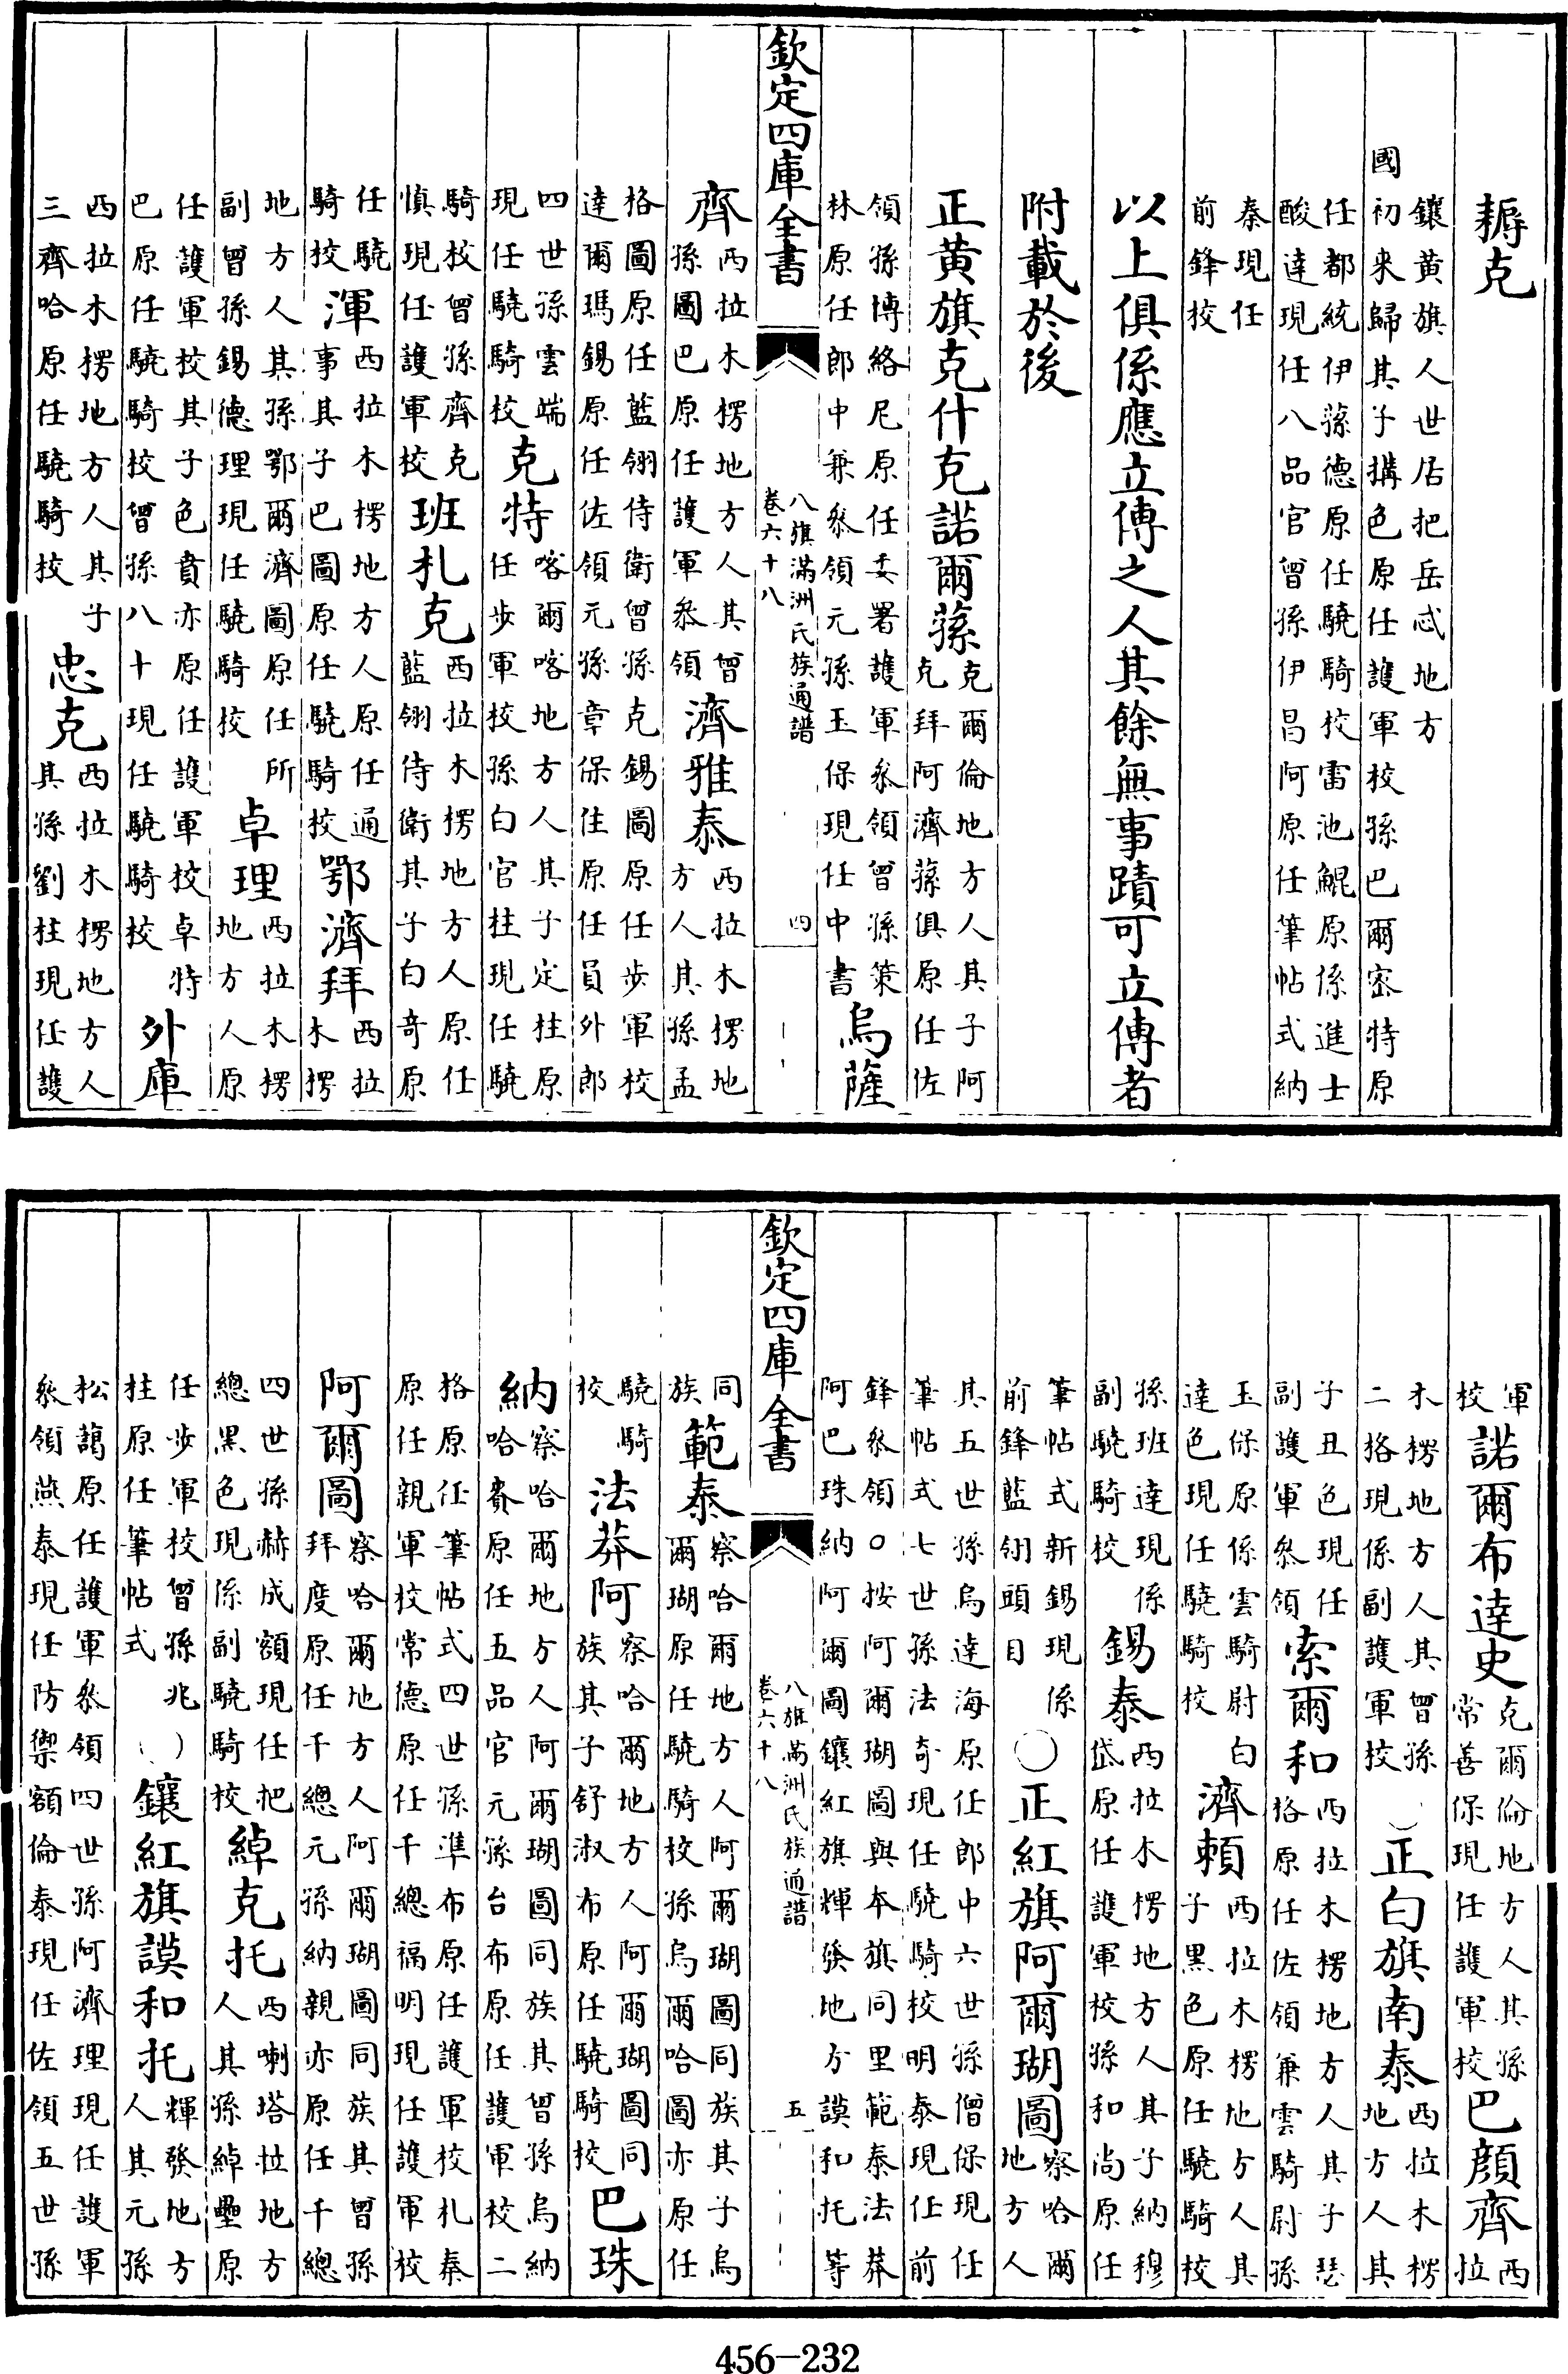 耨克
鑲黄旗人世居把岳忒地方
國初来歸其子搆色原任護軍校孫巴爾宻特原
任都統伊蓀德原任驍騎校雷池鯤原係進士
酸達現任八品官曾孫伊昌阿原任筆帖式納
秦現任
前鋒校
以上俱係應立傳之人其餘無事蹟可立傳者
附載於後
正黄旗克什克諾爾蓀克爾倫地方人其子阿克拜阿濟蓀俱原任佐
領孫博絡尼原任委署護軍叅領曾孫策林原任郎中兼叅領元孫玉保現任中書烏薩
欽定四庫全書
八旗滿洲氏族通譜
卷六十八
四
齊西拉木楞地方人其曾孫圖巴原任護軍叅領濟雅泰西拉木楞地方人其孫孟
格圖原任藍翎侍衛曾孫克錫圖原任步軍校達爾瑪錫原任佐領元孫章保住原任員外郎
四世孫雲端現任驍騎校克特喀爾喀地方人其子定柱原任步軍校孫白官柱現任驍
騎校曾孫齊克慎現任護軍校班札克西拉木楞地方人原任藍翎侍衛其子白竒原
任驍騎校渾西拉木楞地方人原任通事其子巴圖原任驍騎校鄂濟拜西拉木楞
地方人其孫鄂爾濟圖原任所副曾孫錫德理現任驍騎校卓理西拉木楞地方人原
任護軍校其子色賁亦原任護軍校卓特巴原任驍騎校曾孫八十現任驍騎校外庫
西拉木楞地方人其子三齊哈原任驍騎校忠克西拉木楞地方人其孫劉柱現任護
軍校諾爾布達史克爾倫地方人其孫常善保現任護軍校巴顔齊西拉
木楞地方人其曾孫二格現係副護軍校正白旗南泰西拉木楞地方人其
子丑色現任副護軍叅領索爾和西拉木楞地方人其子瑟格原任佐領兼雲騎尉孫
玉保原係雲騎尉白達色現任驍騎校濟頼西拉木楞地方人其子黑色原任驍騎校
孫班達現係副驍騎校錫泰西拉木楞地方人其子納穆岱原任護軍校孫和尚原任
筆帖式新錫現係前鋒藍翎頭目正紅旗阿爾瑚圖察哈爾地方人
其五世孫烏達海原任郎中六世孫僧保現任筆帖式七世孫法奇現任驍騎校明泰現任前
鋒叅領○按阿爾瑚圖與本旗同里範泰法莽阿巴珠納阿爾圖鑲紅旗輝發地方謨和托等
欽定四庫全書
八旗滿洲氏族通譜
卷六十八
五
同族範泰察哈爾地方人阿爾瑚圖同族其子烏爾瑚原任驍騎校孫烏爾哈圖亦原任
驍騎校法莽阿察哈爾地方人阿爾瑚圖同族其子舒淑布原任驍騎校巴珠
納察哈爾地方人阿爾瑚圖同族其曾孫烏納哈賚原任五品官元孫台布原任護軍校二
格原任筆帖式四世孫準布原任護軍校札秦原任親軍校常德原任千總福明現任護軍校
阿爾圖察哈爾地方人阿爾瑚圖同族其曾孫拜度原任千總元孫納親亦原任千總
四世孫赫成額現任把總黑色現係副驍騎校綽克托西喇塔拉地方人其孫綽壘原
任步軍校曾孫兆柱原任筆帖式鑲紅旗謨和托輝發地方人其元孫
松藹原任護軍叅領四世孫阿濟理現任護軍叅領燕泰現任防禦額倫泰現任佐領五世孫
456-232